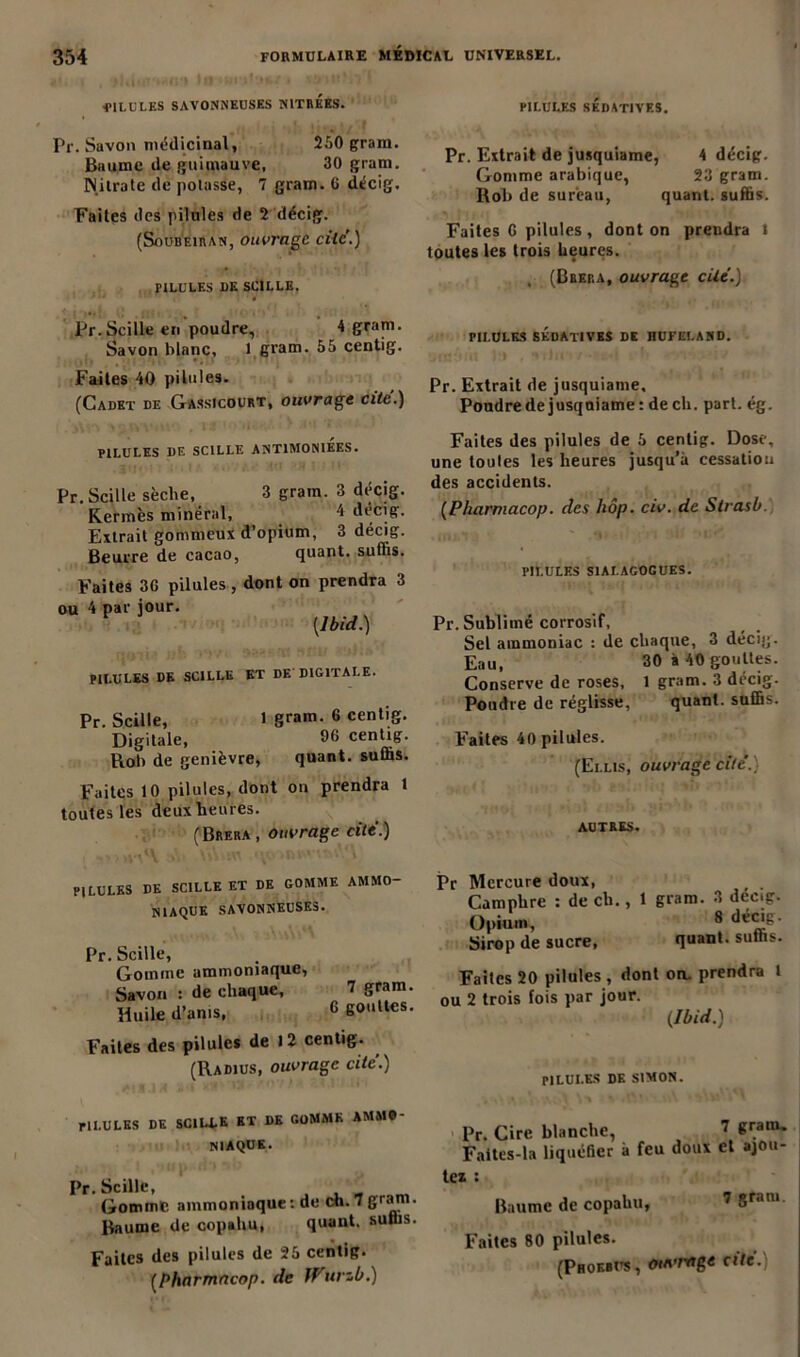 354 FORMULAIRE MÉDICAL UNIVERSEL.
PILULES SAVONNEUSES NITRÉES.
Pr. Savon médicinal, 250 gram.
Baume de guimauve, 30 gram.
Nitrate de potasse, 7 gram. 6 décig.
Faites des pilules de 2 décig.
(SOUBEIRAN, ouvrage cité.)
PILULES DE SCILLE.
Pr. Scille en poudre, 4 gram.
Savon blanc, 1 gram. 55 centig.
Faites 40 pilules.
(CADET DE GASSICOURT, ouvrage cité.)
PILULES DE SCILLE ANTIMONIÉES.
Pr. Scille sèche, 3 gram. 3 décig.
Kermès minéral, 4 décig.
Extrait gommeux d'opium, 3 décig.
Beurre de cacao, quant. suffis.
Faites 36 pilules, dont on prendra 3
ou 4 par jour.
(Ibid.)
PILULES DE SCILLE ET DE DIGITALE.
Pr. Scille, 1 gram. 6 centig.
Digitale, 96 centig.
Rob de genièvre, quant. suffis.
Faites 10 pilules, dont on prendra 1
toutes les deux heures.
(BRERA, ouvrage cité.)
PILULES DE SCILLE ET DE GOMME AMMO-
NIAQUE SAVONNEUSES.
Pr. Scille,
Gomme ammoniaque,
Savon : de chaque, 7 gram.
Huile d'anis, 6 gouttes.
Faites des pilules de 12 centig.
(RADIUS, ouvrage cité.)
PILULES DE SCILLE ET DE GOMME AMMO-
NIAQUE.
Pr. Scille,
Gomme ammoniaque : de ch. 7 gram.
Baume de copahu, quant. suffis.
Faites des pilules de 25 centig.
(Pharmacop. de Wurzb.)
PILULES SÉDATIVES.
Pr. Extrait de jusquiame, 4 décig.
Gomme arabique, 23 gram.
Rob de sureau, quant. suffis.
Faites 6 pilules, dont on prendra 1
toutes les trois heures.
(BRERA, ouvrage cité.)
PILULES SÉDATIVES DE HUFELAND.
Pr. Extrait de jusquiame,
Poudre de jusquiame : de ch. part. ég.
Faites des pilules de 5 centig. Dose,
une toutes les heures jusqu'à cessation
des accidents.
(Pharmacop. des hôp. civ. de Strasb.)
PILULES SIALAGOGUES.
Pr. Sublimé corrosif,
Sel ammoniac : de chaque, 3 décig.
Eau, 30 à 40 gouttes.
Conserve de roses, 1 gram. 3 décig.
Poudre de réglisse, quant. suffis.
Faites 40 pilules.
(ELLIS, ouvrage cité.)
AUTRES.
Pr Mercure doux,
Camphre : de ch., 1 gram. 3 décig.
Opium, 8 décig.
Sirop de sucre, quant. suffis.
Faites 20 pilules, dont on prendra 1
ou 2 trois fois par jour.
(Ibid.)
PILULES DE SIMON.
Pr. Cire blanche, 7 gram.
Faites-la liquéfier à feu doux et ajou-
tez :
Baume de copahu, 7 gram.
Faites 80 pilules.
(PHOEBUS, ouvrage cité.)